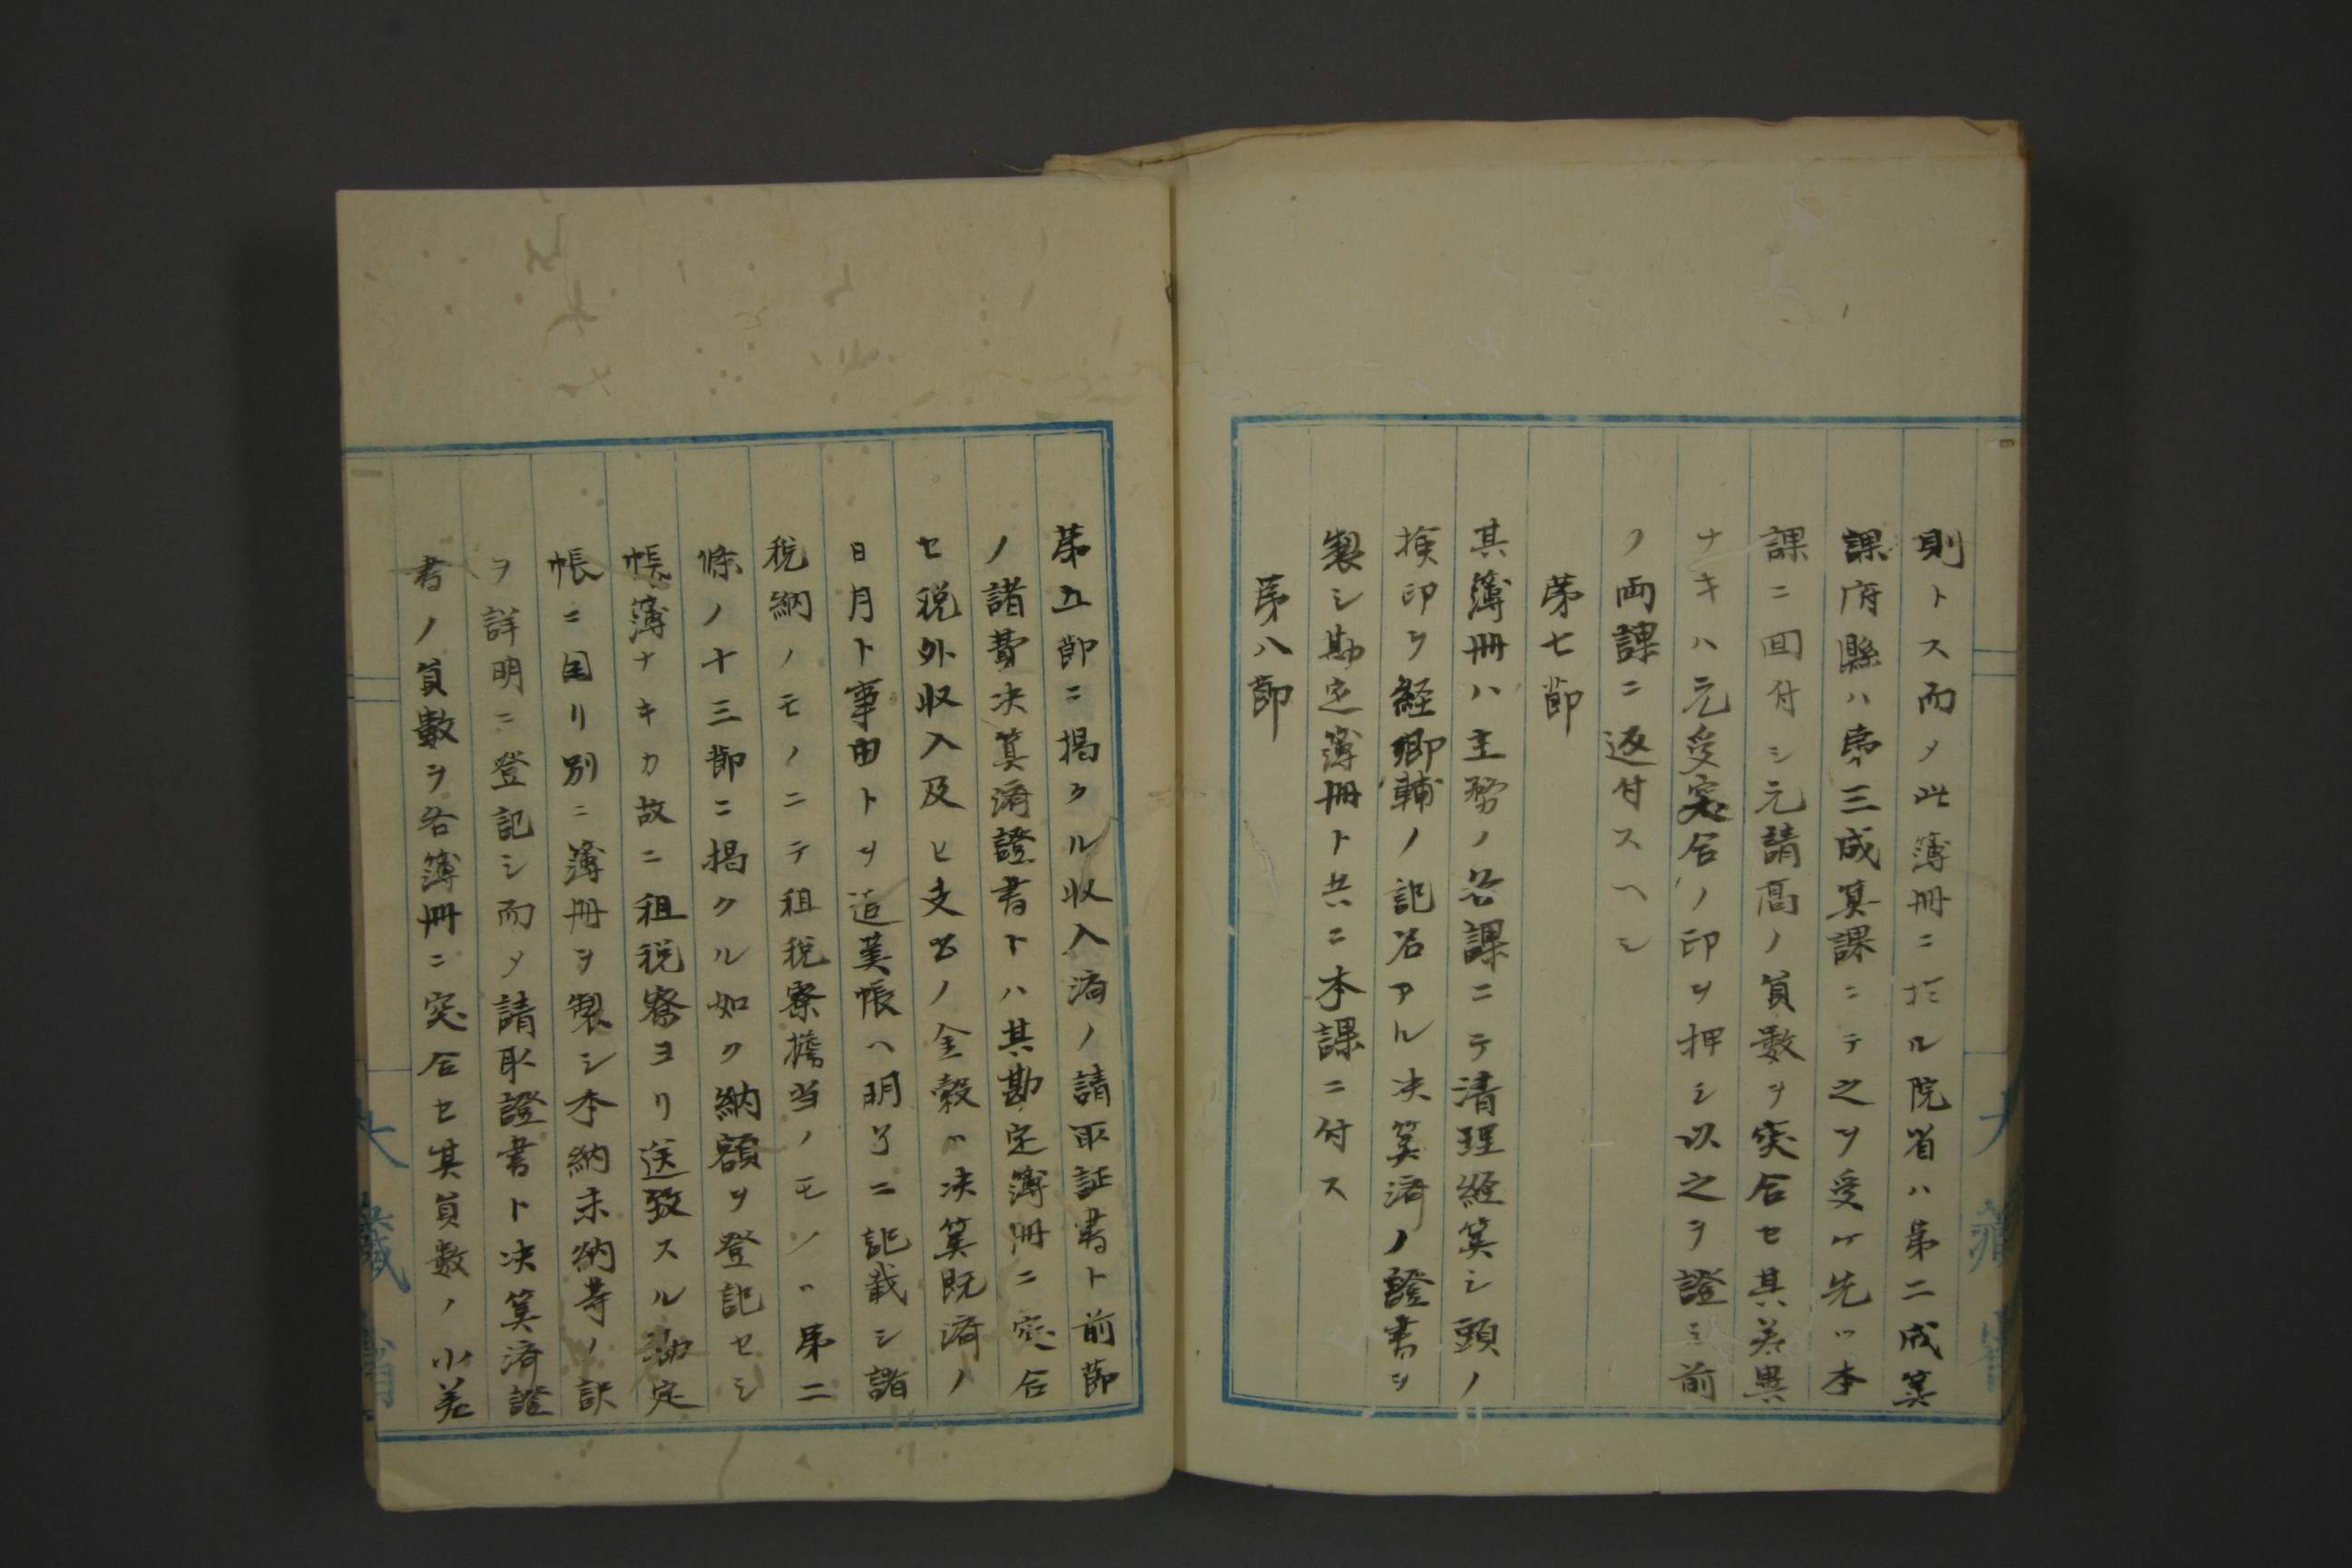 則トス而メ此簿冊ニ於ル院省ハ第二成筭
課府縣ハ第三成筭課ニテ之ヲ受ケ先ツ本
課ニ回付シ元請髙ノ員数ヲ突合セ其差異
ナキハ元受突合ノ印ヲ押シ以之ヲ證シ前
ノ両課ニ返付スヘシ
第七節
其簿冊ハ主務ノ各課ニテ清理経筭シ頭ノ
検印ヲ経卿輔ノ記名アル决筭済ノ證書ヲ
製シ勘定簿冊ト共ニ本課ニ付ス
第八節
第五節ニ掲クル収入済ノ請取証書ト前節
ノ諸費决筭済證書トハ其勘定簿冊ニ突合
セ税外収入及ヒ支出ノ金穀ハ决筭既済ノ
日月ト事由トヲ追算帳ヘ明了ニ記載シ諸
税納ノモノニテ租税寮擔当ノモノハ第二
條ノ十三節ニ掲クル如ク納額ヲ登記セシ
帳簿ナキカ故ニ租税寮ヨリ送致スル勘定
帳ニ因リ別ニ簿冊ヲ製シ本納未納等ノ訳
ヲ詳明ニ登記シ而メ請取證書ト决筭済證
書ノ員數ヲ各簿冊ニ突合セ其員數ノ小差
大藏省